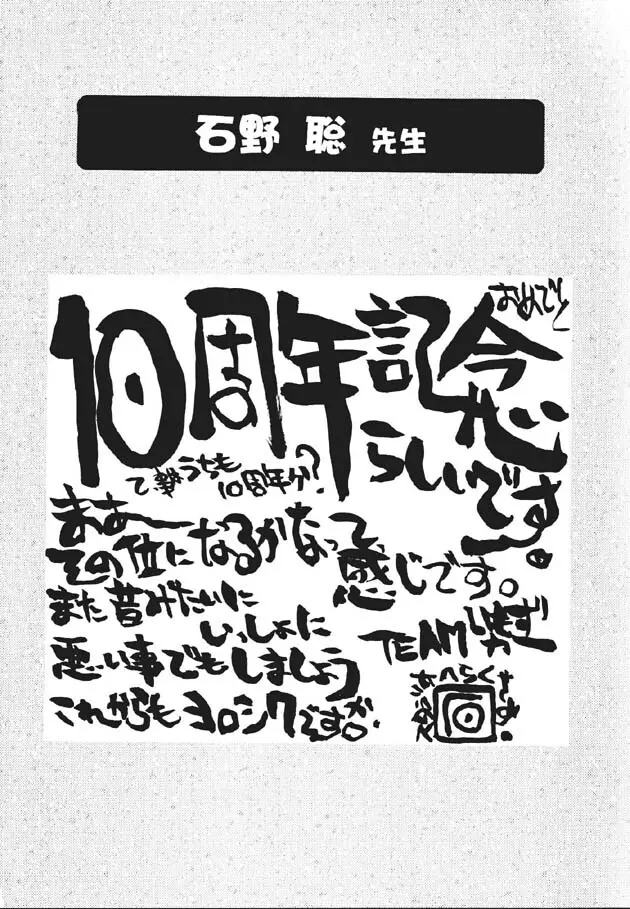 石野 聡 先生
おめでと
10周年記念
らしいです。
うちも
10周年か?
まあー
その位になるかなって
感じです。
また昔みたいに
いっしょに
悪い事でもしましょう
これからもヨロシクですが。
TEAM